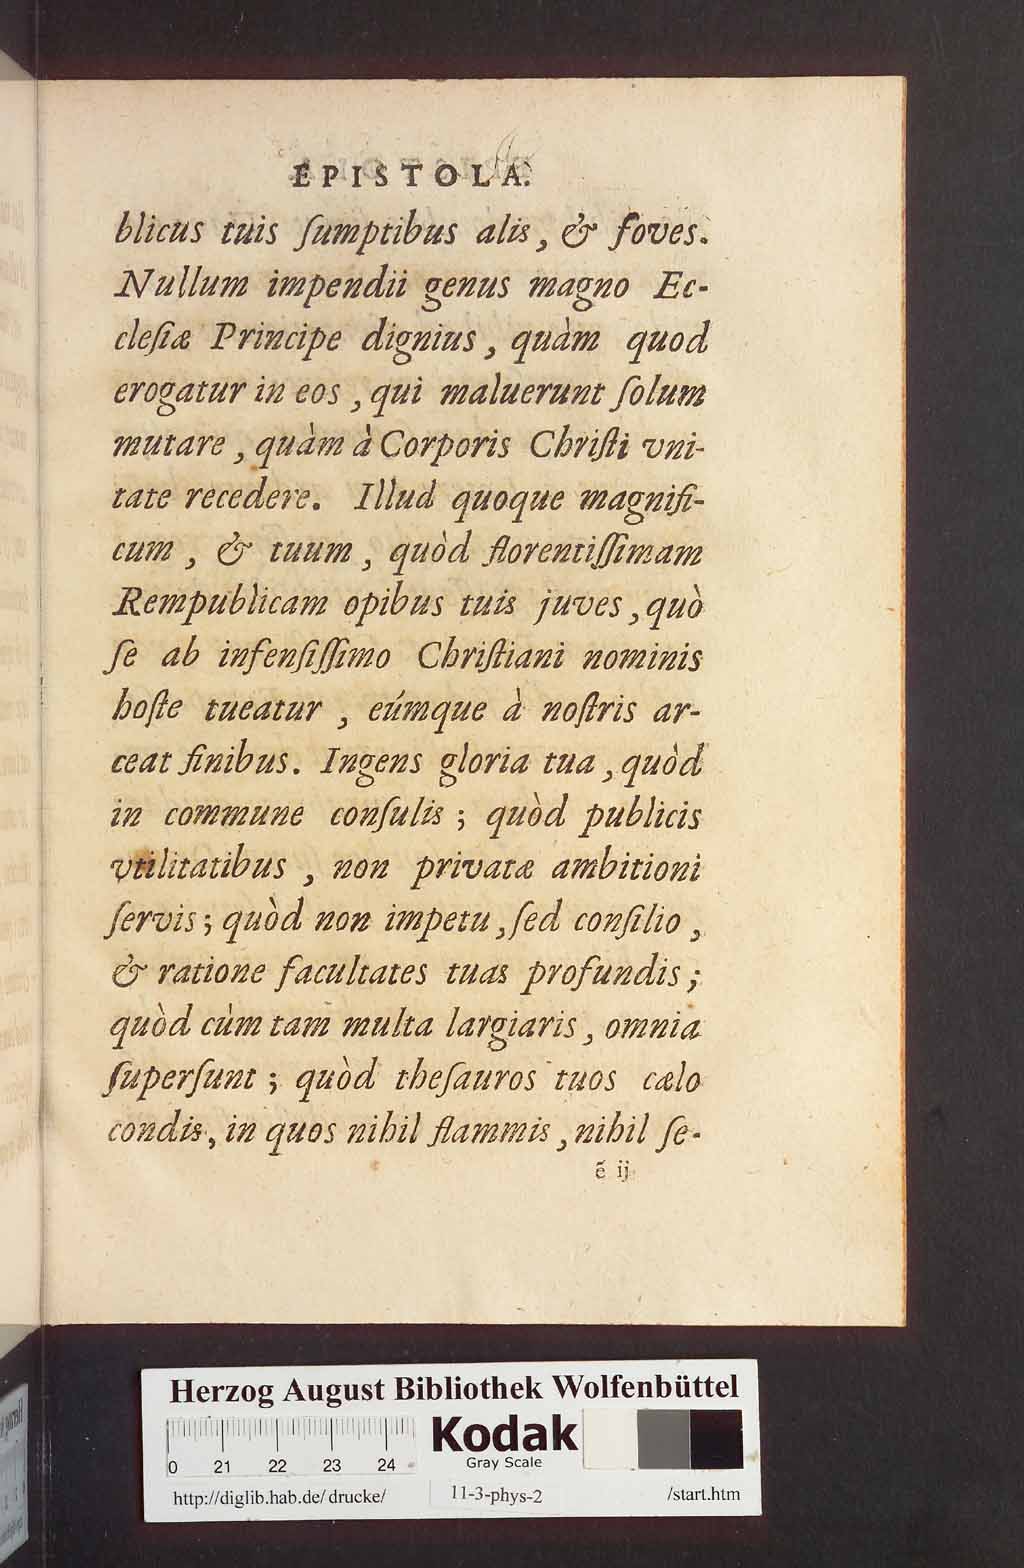 EPISTOLA.
blicus tuis ſumptibus alis, & foves.
Nullum impendii genus magno Ec-
cleſiæ Principe dignius, quàm quod
erogatur in eos, qui maluerunt ſolum
mutare, quàm à Corporis Chriſti vni-
tate recedere. Illud quoque magnifi-
cum, & tuum, quòd florentiſſimam
Rempublicam opibus tuis juves, quò
ſe ab infenſiſſimo Chriſtiani nominis
hoſte tueatur, eúmque à noſtris ar-
ceat finibus. Ingens gloria tua, quòd
in commune conſulis; quòd publicis
vtilitatibus, non privatæ ambitioni
ſervis; quòd non impetu, ſed conſilio,
& ratione facultates tuas profundis;
quòd cùm tam multa largiaris, omnia
ſuperſunt; quòd theſauros tuos cælo
condis, in quos nihil flammis, nihil ſe-
é ij
Herzog August Bibliothek Wolfenbüttel
Kodak
Gray Scale
0 21 22 23 24
http://diglib.hab.de/drucke/ 11-3-phys-2 /start.htm